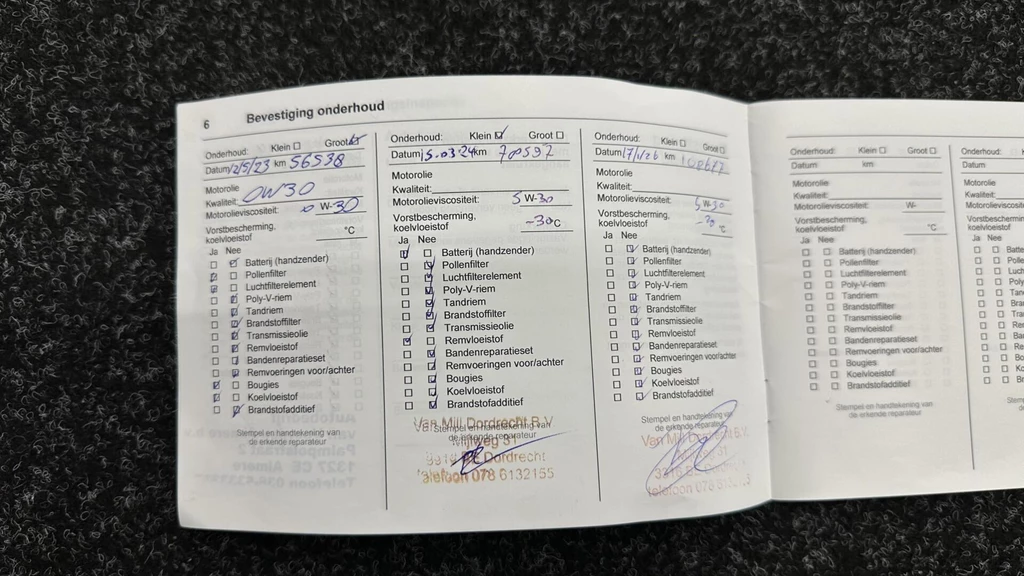 6 Bevestiging onderhoud
Onderhoud: Klein Groot
Datum 12/5/23 km 56538
Motorolie
Kwaliteit: 0W30
Motorolieviscositeit: 0 W-30
Vorstbescherming,
koelvloeistof °C
Ja Nee
Batterij (handzender)
Pollenfilter
Luchtfilterelement
Poly-V-riem
Tandriem
Brandstoffilter
Transmissieolie
Remvloeistof
Bandenreparatieset
Remvoeringen voor/achter
Bougies
Koelvloeistof
Brandstofadditief
Stempel en handtekening van
de erkende reparateur
Onderhoud: Klein Groot
Datum 15.03.24 km 70597
Motorolie
Kwaliteit:
Motorolieviscositeit: 5 W-30
Vorstbescherming,
koelvloeistof -30°C
Ja Nee
Batterij (handzender)
Pollenfilter
Luchtfilterelement
Poly-V-riem
Tandriem
Brandstoffilter
Transmissieolie
Remvloeistof
Bandenreparatieset
Remvoeringen voor/achter
Bougies
Koelvloeistof
Brandstofadditief
Stempel en handtekening van
de erkende reparateur
Van Mill Dordrecht B.V.
Mijlweg 31
Dordrecht
Telefoon 078 6132155
Onderhoud: Klein Groot
Datum km
Motorolie
Kwaliteit:
Motorolieviscositeit: 5 W-30
Vorstbescherming,
koelvloeistof °C
Ja Nee
Batterij (handzender)
Pollenfilter
Luchtfilterelement
Poly-V-riem
Tandriem
Brandstoffilter
Transmissieolie
Remvloeistof
Bandenreparatieset
Remvoeringen voor/achter
Bougies
Koelvloeistof
Brandstofadditief
Stempel en handtekening van
de erkende reparateur
Van Mill Dordrecht B.V.
31
Telefoon 078
Onderhoud: Klein Groot
Datum km
Motorolie
Kwaliteit:
Motorolieviscositeit: W-
Vorstbescherming,
koelvloeistof °C
Ja Nee
Batterij (handzender)
Pollenfilter
Luchtfilterelement
Poly-V-riem
Tandriem
Brandstoffilter
Transmissieolie
Remvloeistof
Bandenreparatieset
Remvoeringen voor/achter
Bougies
Koelvloeistof
Brandstofadditief
Stempel en handtekening van
de erkende reparateur
Onderhoud:
Datum
Motorolie
Kwaliteit:
Motorolieviscosit
Vorstbescherming
koelvloeistof
Ja Nee